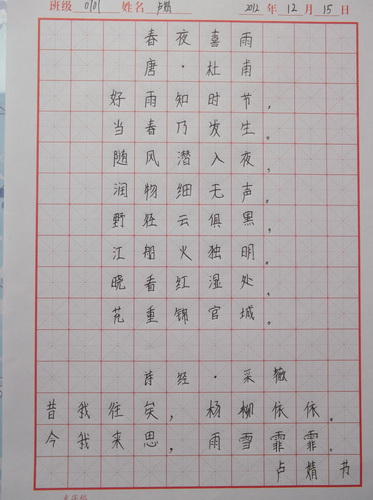 班级 0101 姓名 卢婧 2012 年 12 月 15 日
春夜喜雨
唐·杜甫
好雨知时节，
当春乃发生。
随风潜入夜，
润物细无声。
野径云俱黑，
江船火独明。
晓看红湿处，
花重锦官城。
诗经·采薇
昔我往矣，杨柳依依。
今我来思，雨雪霏霏。
卢婧书